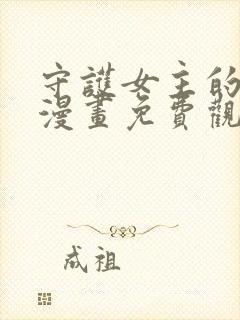 守護女主的
漫畫免費觀
成祖